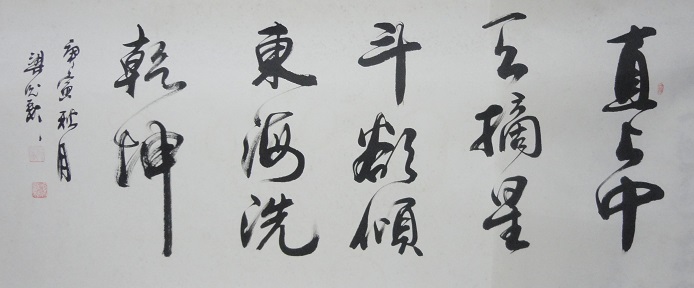 直上中
天摘星
斗欲傾
東海洗
乾坤
庚寅秋月
梁